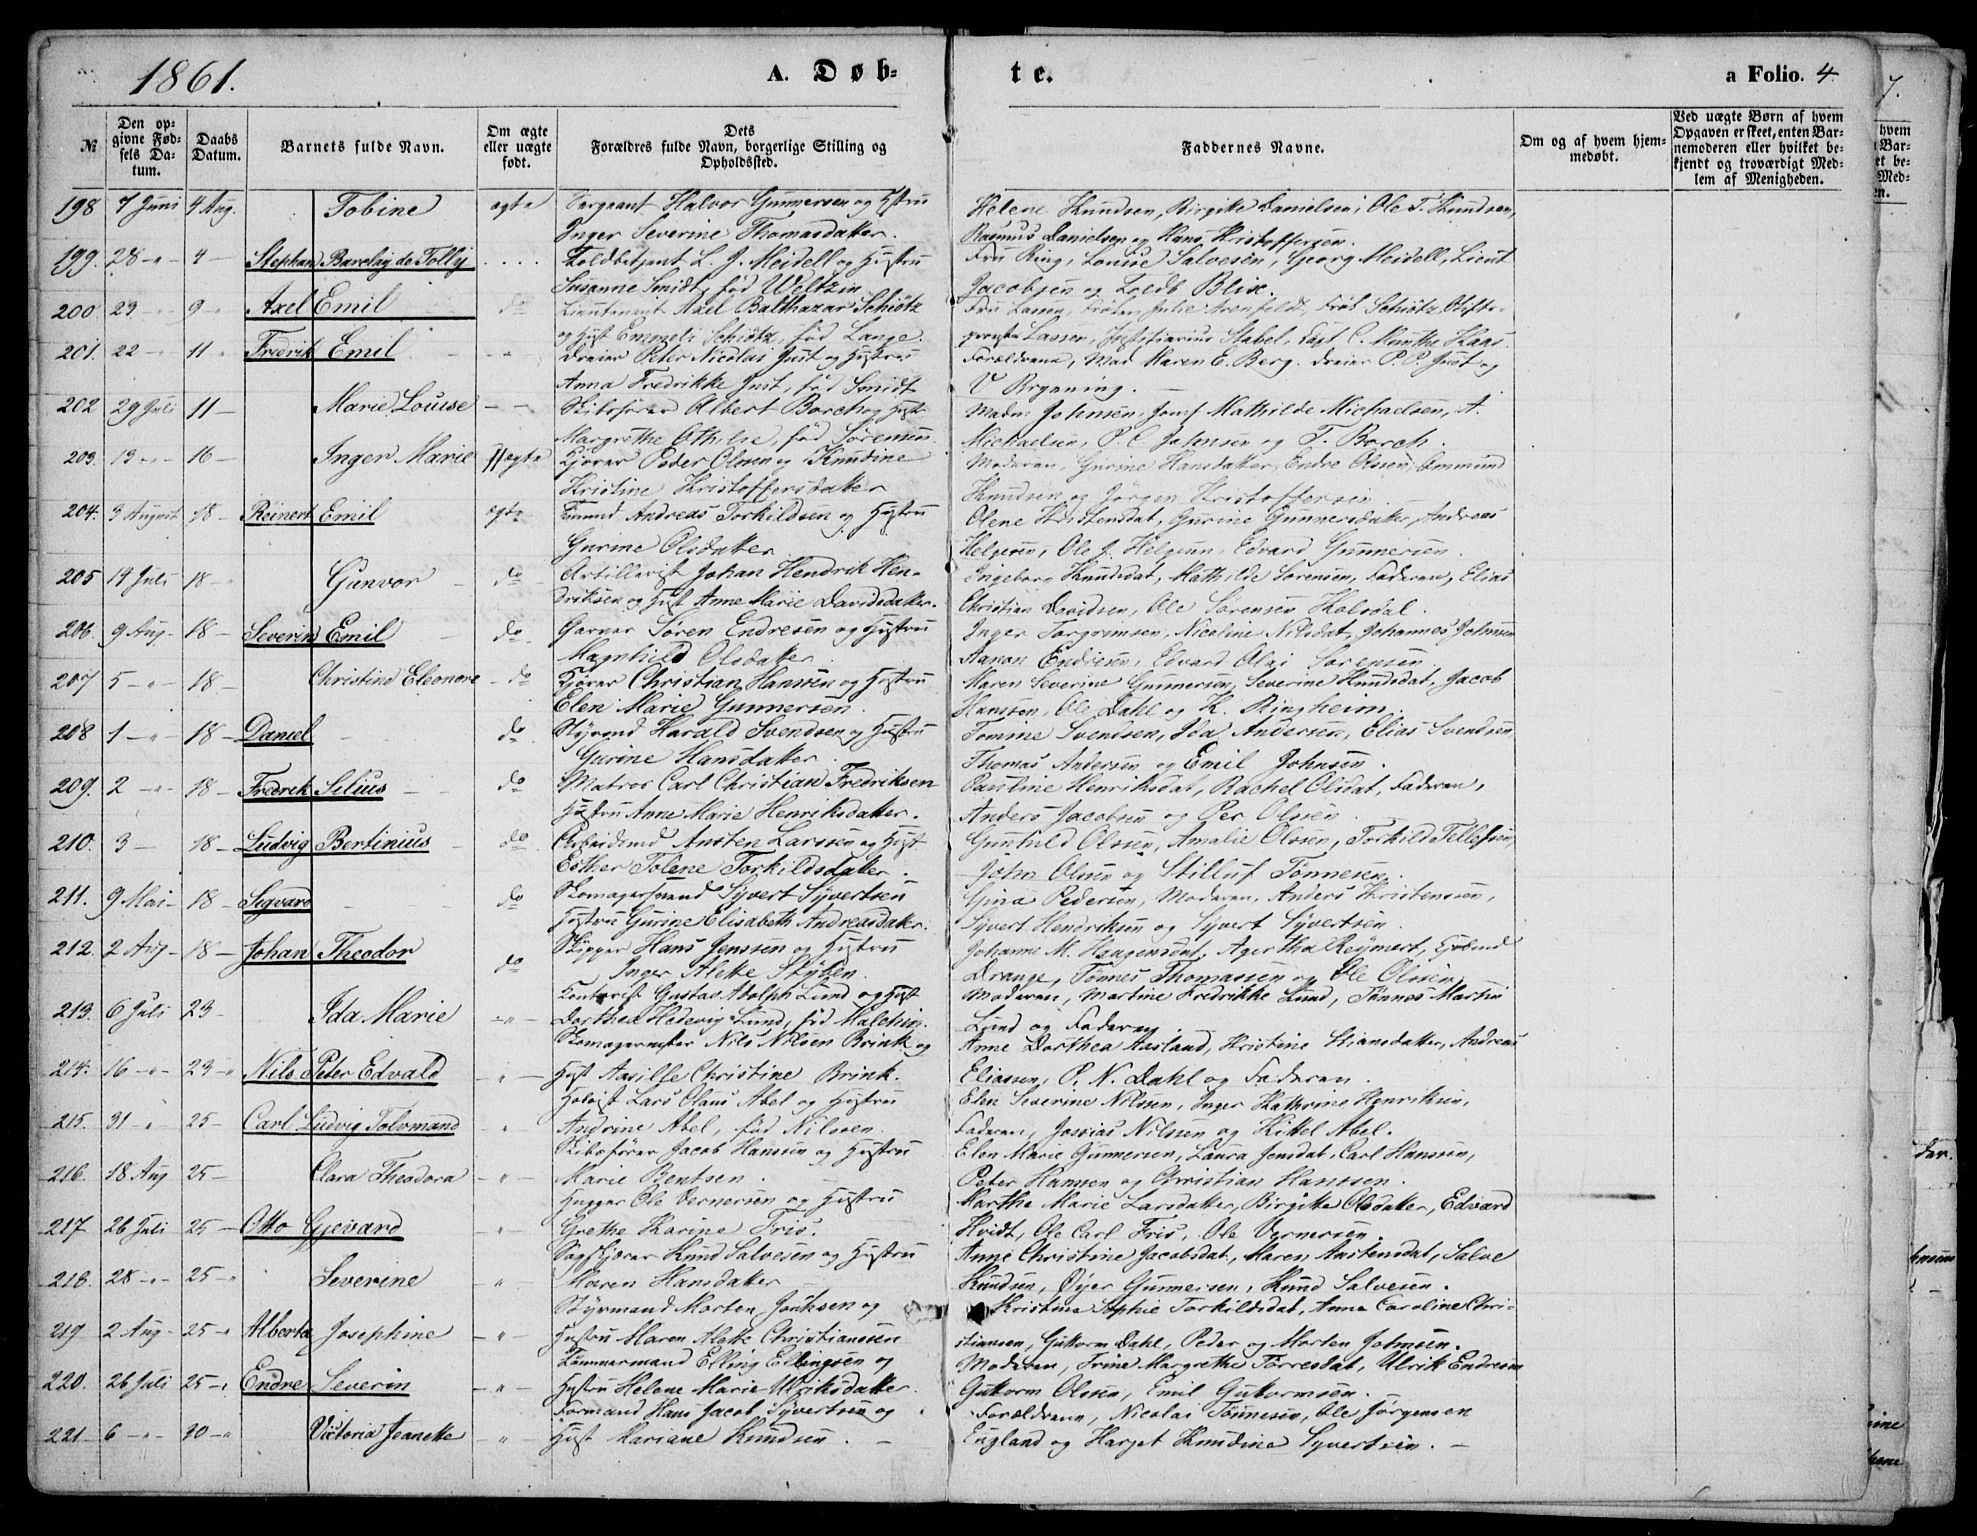 1861.
A. Døb-
te.
a Folio. 4
№
Den op-
givne Fød-
sels Da-
tum.
Daabs
Datum.
Barnets fulde Navn.
Om ægte
eller uægte
født.
Dets
Forældres fulde Navn, borgerlige Stilling og
Opholdssted.
Faddernes Navne.
Om og af hvem hjem-
medøbt.
Ved uægte Børn af hvem
Opgaven er skeet, enten Bar-
nemoderen eller hvilket be-
kjendt og troværdigt Med-
lem af Menigheden.
198 7 Juni 4 Aug. Tobine ægte Sergeant Halvor Gunnersen og Hstru
Inger Severine Thomasdatter.
Helene Knudsen, Birgitte Danielsen, Ole T. Knudsen,
Rasmus Danielsen og Hans Kristoffersen.
199. 28 -"- 4 - Stephan Barclay de Tolly Toldbetjent L. J. Meidell og Hustru
Susanne Smidt, fød Weltzin
Fru Ring, Louise Salvesen, Georg Meidell, Lieut
Jacobsen og Toldb Blix.
200 23 9 Axel Emil do Lieutenant Axel Balthazar Schiøtz
og Hust Emmeli Schiøtz, fød Lange.
Fru Lassen, Frøken Julie Arenfeldt, Frøk Schiøtz, Stifts-
provst Lassen, Justitiarius Stabel, Capt C. Munthe Kaas.
201. 22 11 Fredrik Emil Dreier Peter Nicolai Just og Hustru
Anna Fredrikke Just, fød Smidt
Forældrene, Mad Karen E. Berg. Dreier P. P. Just og
V Brynning.
202 29 Juli 11 - Marie Louise Skibsfører Albert Borch og Hust
Margrethe Othilie, fød Sørensen.
Madm Johnsen, Jomf Mathilde Michaelsen, A.
Michaelsen, P. C. Johnsen og T. Borch.
203. 13 16 Inger Marie Uægte Kjører Peder Olsen og Knudine
Kristine Kristoffersdatter
Moderen, Gurine Hansdatter, Endre Olsen, Ommund
Knudsen og Jørgen Kristoffersen
204. 3 August 18 - Reinert Emil ægte Tømmd Andreas Torkildsen og Hustru
Gurine Olsdatter
Olene Kristensdat, Gurine Gunnersdatter, Andreas
Helgesen, Ole J. Helgesen, Edvard Gunnersen.
205 14 Juli 18 Gunvor do Artillerist Johan Hendrik Hen-
driksen og Hust Anne Marie Davidsdatter.
Ingeborg Knudsdat, Mathilde Sørensen, Faderen, Elias
Christian Davidsen, Ole Sørensen Kolsdal.
206. 9 Aug. 18 - Severin Emil do Garver Søren Endresen og Hustru
Magnhild Olsdatter.
Inger Torgrimsen, Nicoline Nilsdat, Johannes Johnsen
Aanon Endresen, Edvard Olai Sørensen
207 5 -"- 18 - Christine Eleonore do Kjører Christian Hansen og Hustru
Elen Marie Gunnersen.
Karen Severine Gunnersen, Severine Knudsdat, Jacob
Hanssen, Ole Dahl og K. Ringheim.
208 1 -"- 18 - Daniel do Styrmd Harald Svendsen og Hustru
Gurine Hansdatter.
Tomine Svendsen, Ida Andersen, Elias Svendsen
Thomas Andersen og Emil Johnsen.
209. 2 -"- 18 - Fredrik Silius do Matros Carl Christian Fredriksen
Hustru Anne Marie Henriksdatter.
Pauline Henriksdat, Rachel Olsdat, Faderen,
Anders Jacobsen og Per Olsen
210. 3 - 18 - Ludvig Bertinius do Arbeidsmd Austen Larssen og Hust
Esther Tolene Torkildsdatter.
Gunhild Olsen, Amalie Olsen, Torkild Tellefsen,
John Olsen og Stilluf Tønnesen.
211. 9 Mai - 18 - Sigvard do Skomagersvend Syvert Syvertsen
Hustru Gurine Elisabeth Andreasdatter.
Gina Pedersen, Moderen, Anders Kristensen,
Syvert Hendriksen og Syvert Syvertsen.
212. 2 Aug - 18 - Johan Theodor do Skipper Hans Jenssen og Hustru
Inger Alette Støhlen.
Johanne M. Haagensdat, Agertha Reymert,
Drange, Tønnes Thomassen og Ole Olsen
213. 6 Juli 23 - Ida Marie -"- Kontorist Gustav Adolph Lund og Hust
Dorthea Hedevig Lund, fød Malthin.
Moderen, Martine Fredrikke Lund, Tønnes Martin
Lund og Faderen.
214. 16 -"- 23 -" Nils Peter Edvald -"- Skomagermester Nils Nilsen Brink og
Hust Aasille Christine Brink.
Anne Dorthea Aasland, Kristine Stiansdatter, Andreas
Eliassen, P. N. Dahl og Faderen.
215. 31 " 25 - Carl Ludvig Tolvmand " Hoboist Lars Olaus Abel og Hustru
Andrine Abel, fød Nilssen.
Elen Severine Nilssen, Inger Kathrine Henriksen,
Faderen, Jossias Nilssen og Kittel Abel.
216. 18 Aug 25 - Clara Theodora -"- Skibsfører Jacob Hanssen og Hustru
Marie Bentsen.
Elen Marie Gunnersen, Laura Jensdat, Carl Hanssen,
Peter Hanssen og Christian Hanssen.
217 26 Juli 25 - Otto Gjevard " Hugger Ole Vernersen og Hustru
Grethe Karine Fris.
Marthe Marie Larsdatter, Birgitte Olsdatter, Edvard
Hvidt, Ole Carl Fris, Ole Vernersen.
218. 28 -"- 25 -" Severine -"- Sagskjærer Knud Salvesen og Hustru
Maren Hansdatter
Anne Christine Jacobsdat, Maren Austensdat, Salve
Knudsen, Øyer Gunnersen, Knud Salvesen.
219 2 Aug - 25 -" Alberta Josephine -"- Styrmand Morten Johnsen og
Hustru Maren Alette Christianssen
Kristine Sophie Torkildsdat, Anne Caroline Chri-
stiansen, Guttorm Dahl, Peder og Morten Johnsen.
220. 26 Juli 25 -" Endre Severin -"- Tømmermand Elling Ellingsen og
Hustru Helene Marie Ulriksdatter.
Moderen, Trine Margrethe Torresdat, Ulrik Endresen
Guttorm Olssen, Emil Guttormsen.
221. 6 -"- 30 -" Victoria Jeanette " Formand Hans Jacob Syvertsen og
Hust Mariane Knudsen.
Forældrene, Nicolai Tønnesen, Ole Jørgensen
England og Harjet Knudine Syvertsen.